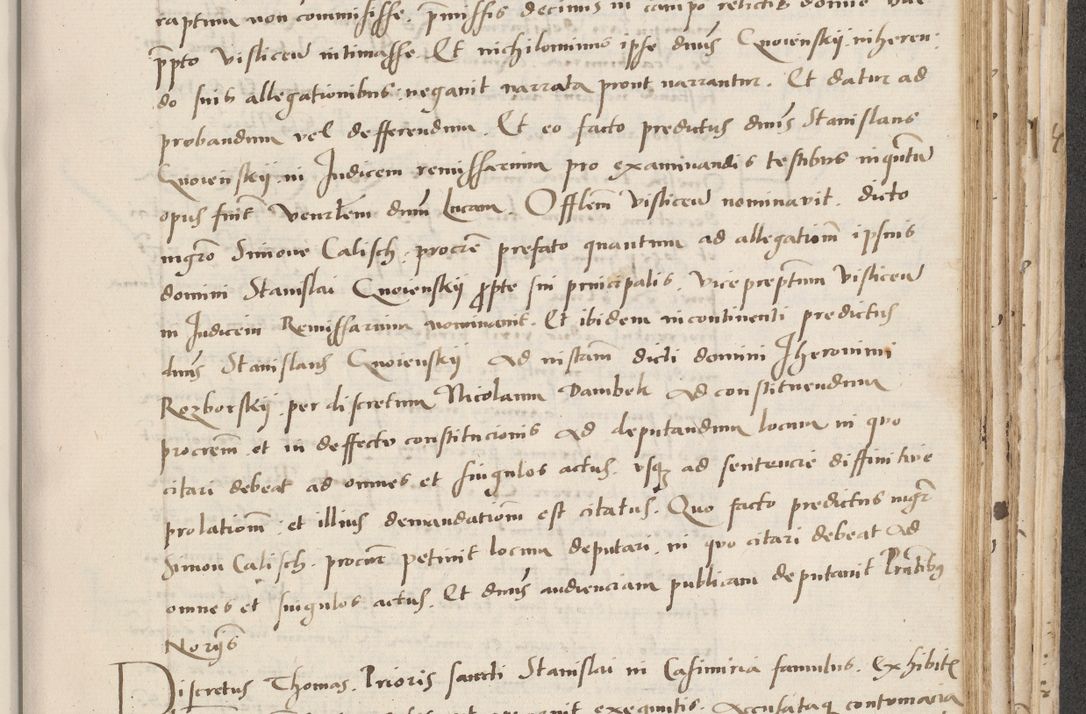 raptum non commisisse, p̄missis decimis in campo relictis domne
p̄pto Visliceñ intimasse. Et nichilominus ipse dnus Gnoienskij inheren:
do suis allegationibus: negauit narrata prout narrantur. Et datur ad
probandum vel defferendum. Et eo facto predictus dnus Stanislaus
Gnoienskij in Judicem remissarium pro examinandis testibus inquantū
opus fuit Venrlem dnm Lucam. Offlem Visliceñ nominauit. dicto
mgro Simone Calisch. procrē prefato quantum ad allegationē ipsius
domini Stanislai Gnoienskij ꝓpte sui principalis. viceprepttum Visliceñ
in Judicem Remissarium nominauit. Et ibidem incontinenti predictus
dnus Stanislaus Gnoienskij ad instam dicti domini Jheronimi
Rozborskij. per discretum Nicolaum Dambek ad constituendum
procrem et in deffectu constitucionis ad deputandum locum in quo
citari debeat ad omnes et singulos actus. usqꝫ ad sentencie diffinitive
prolationē. et illius demandationē est citatus. Quo facto predictus mgr
Simon Calisch. procur petiuit locum deputari. in quo citari debeat ad
omnes et singulos actus. Et dnus audienciam publicam deputauit Prñtibꝫ
Norijs
Discretus Thomas. Prioris sancti Stanislai in Casimiria famulus. Exhibitꝭ
exequutis. Accusataqꝫ contumacia